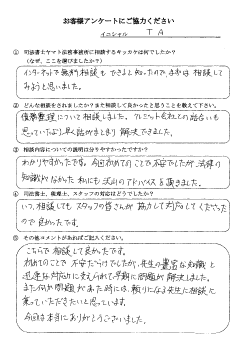 お客様アンケートにご協力ください
イニシャル T A
① 司法書士ヤマト法務事務所に相談するキッカケは何でしたか？
（なぜ、ここを選びましたか？）
インターネットで無料相談も できると知ったので、まずは 相談して
みようと思いました。
② どんな相談をされましたか？また相談して良かったと思うことを教えて下さい。
債務整理について相談しました。クレジット会社との話合いも
思っていたより早く話がまとまり 解決しました。
③ 相談内容についての説明は分りやすかったですか？
わかりやすかったです。今回初めての ことで不安でしたが、法律の
知識がなかった 私にも 沢山のアドバイスを 頂きました。
④ 司法書士、税理士、スタッフの対応はどうでしたか？
いつ、相談しても スタッフの皆さんが 協力して 対応してくださった
ので 良かったです。
⑤ その他コメントがあればご記入ください。
こちらで 相談して 良かったです。
初めてのことで 不安だらけでしたが、先生の豊富な知識と
迅速な対応に支えられて 早期に 問題が 解決しました。
また何か問題が あった時には、頼りになる先生に相談に
乗っていただきたいと思っています
今回は本当にありがとうございました。